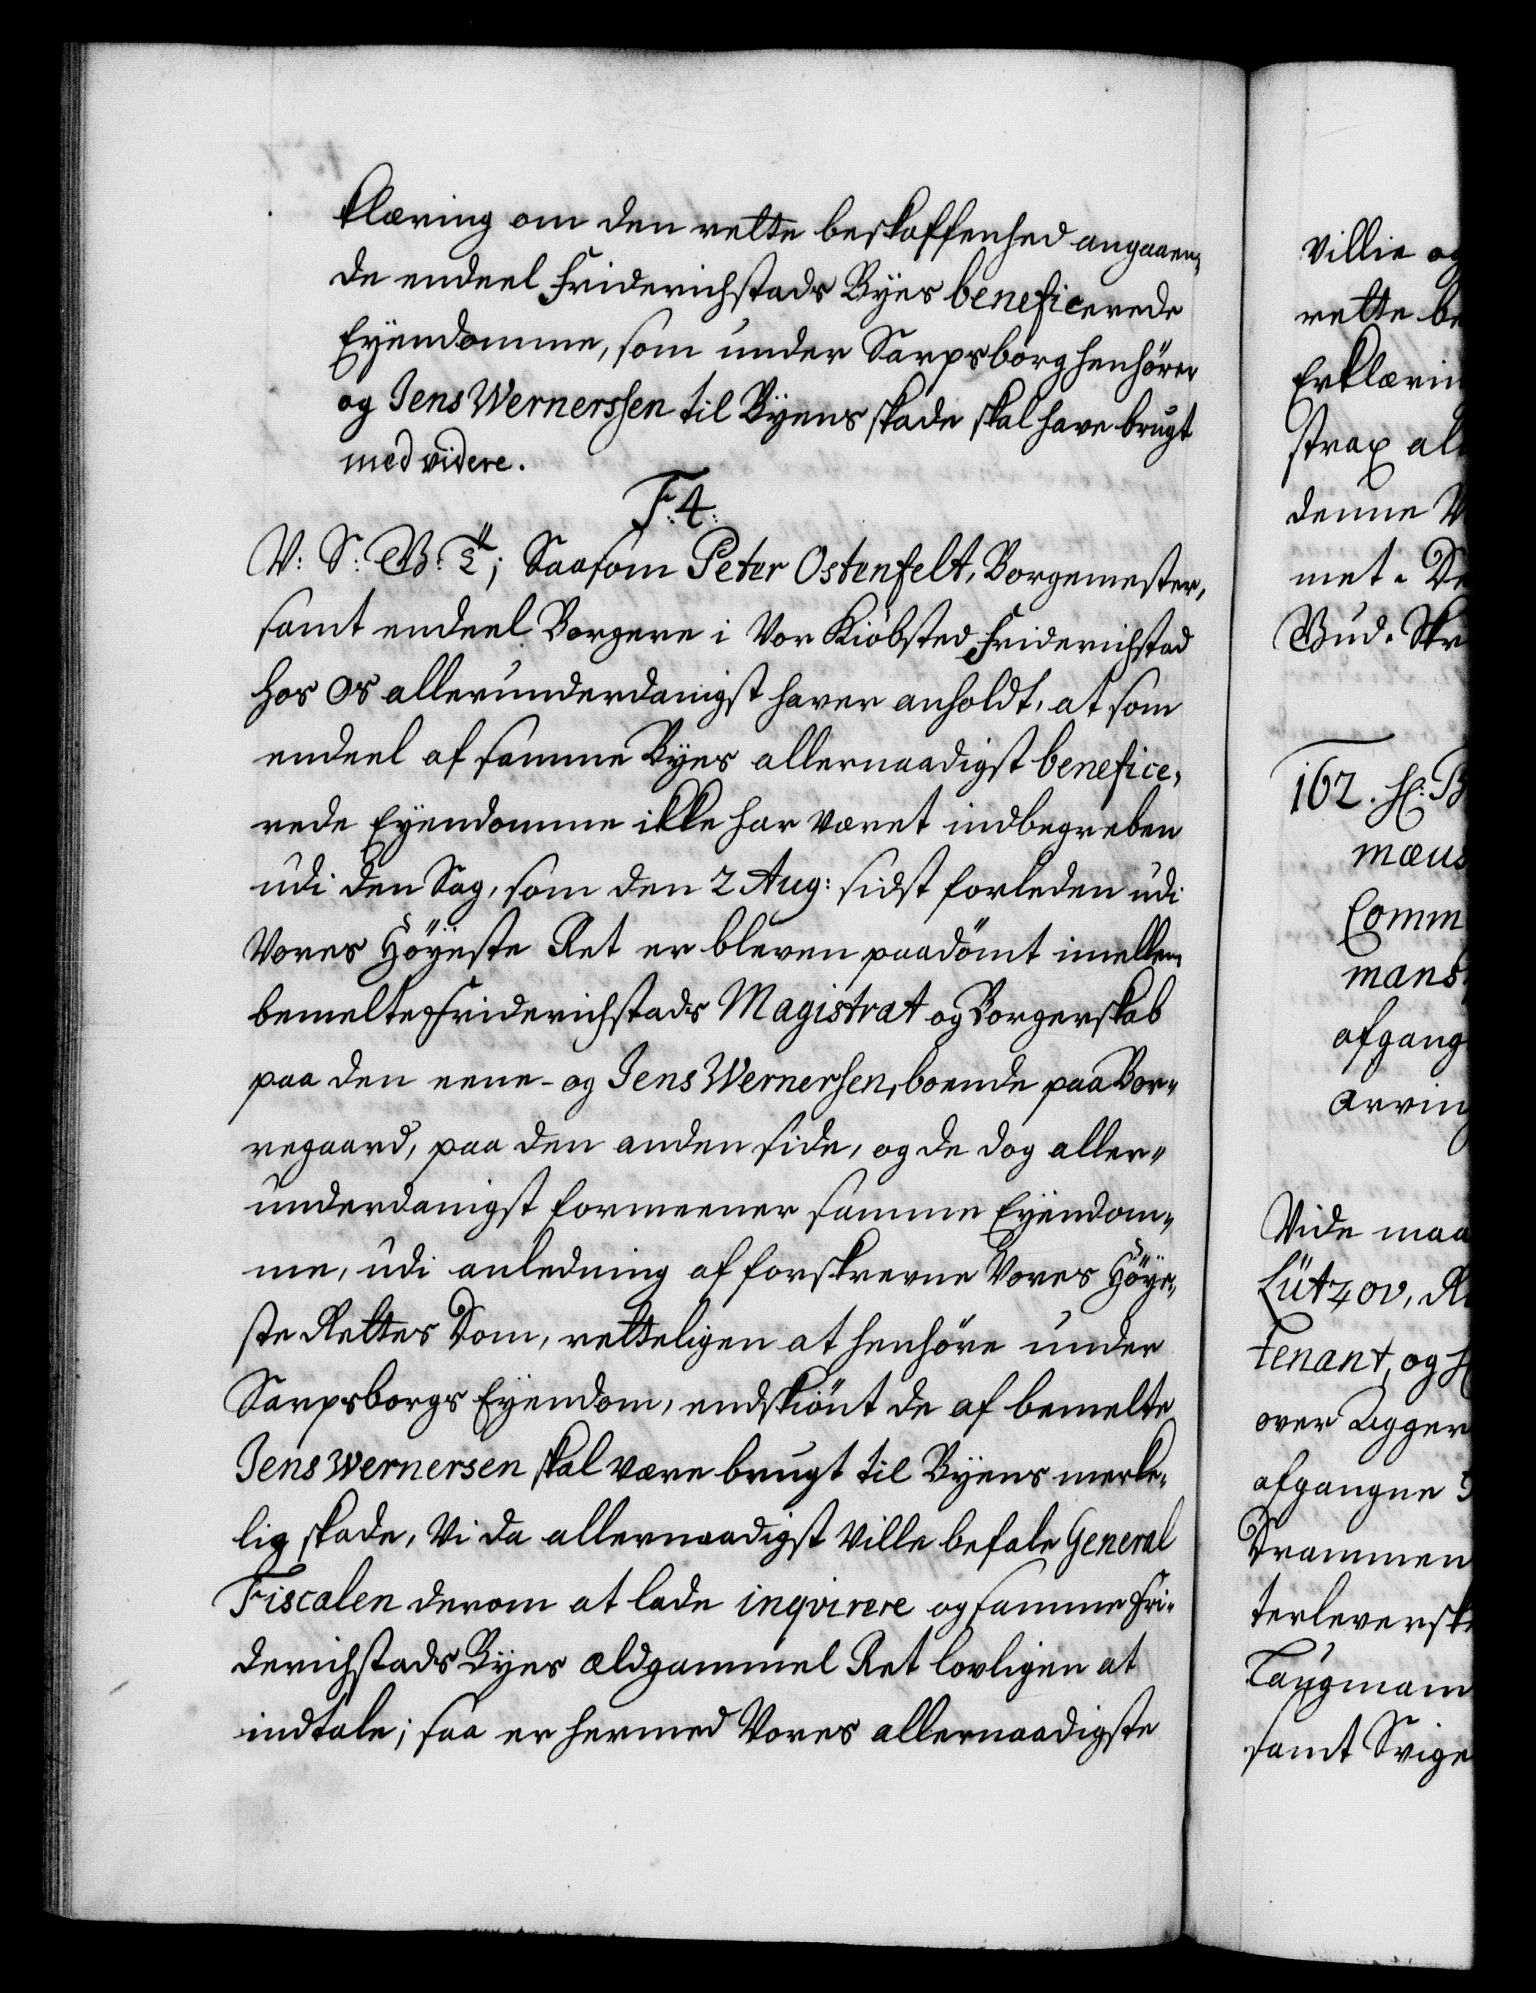 klæring om den rette beskaffenhed angaaen-
de endeel Friderichstads Byes beneficerede
Eyendomme, som under Sarpsborg henhörer
og Jens Wernerssen til Byens skade skal have brugt
med videre.
F. 4.
V: S: G: T; Saasom Peter Ostenfelt, Borgemester,
samt endeel Borgere i Vor Kiöbsted Friderichstad
hos Os allerunderdanigst haver anholdt, at som
endeel af samme Byes allernaadigst benefice-
rede Eyendomme ikke har været indbegreben
udi den Sag, som den 2 Aug: sidst forleden udi
Vores Höyeste Ret er bleven paadömt imellem
bemelte Friderichstads Magistrat og Borgerskab
paa den eene- og Jens Wernersen, boende paa Bor-
regaard, paa den anden side, og de dog aller-
underdanigst formeener samme Eyendom-
me, udi anledning af forskrevne Vores Höye-
ste Rettes Dom, retteligen at henhöre under
Sarpsborgs Eyendom, endskiönt de af bemelte
Jens Wernersen skal være brugt til Byens merke-
lig skade, Vi da allernaadigst ville befale General
Fiscalen derom at lade inqvirere og samme Fri-
derichstads Byes ældgammel Ret lovligen at
indtale; saa er hermed Vores allernaadigste
villie og
rette be
Erklærin
strax al
denne V
met. De
Bud. Skr
162. H: B
mæus
Comm
mans
afgang
arving
Vide maa
Lützov, R
tenant, og H
over Agger
afgangne
Drammen
terleversk
Laugmam
samt Svige